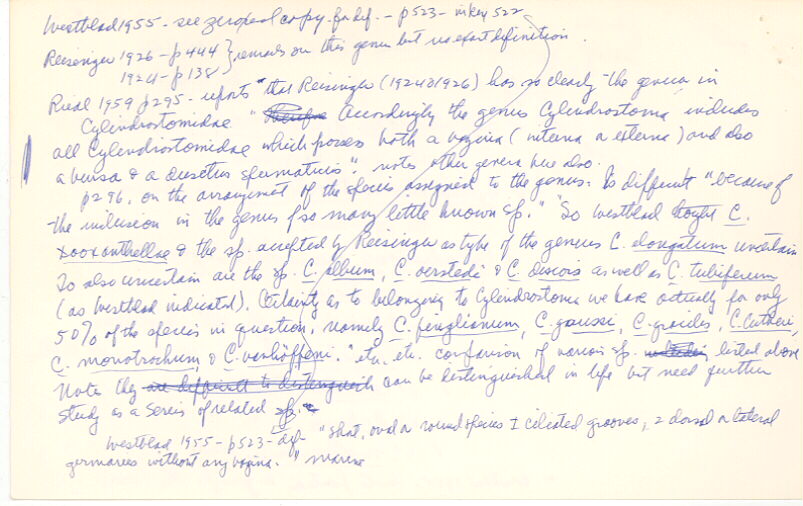 Westblad 1955 - see zeroxed copy for def. - p523 - in key 522
Reisinger 1926 - p444 } remarks on this genus but no exact definition.
1924 - p138
Riedl 1959 p295 - reports "that Reisinger (1924 & 1926) has so clearly the genera in
Cylindrostomidae. "Accordingly the genus Cylindrostoma includes
all Cylindrostomidae which possess both a vagina (interna a externa) and also
a bursa & a ductus spermaticus". notes other genera here also.
p296, on the arrangement of the species assigned to the genus. Is difficult "because of
the inclusion in the genus of so many little known sp." "So Westblad C.
xooxanthellae & the sp. accepted by Reisinger as type of the genus C. elongatum uncertain
So also uncertain are the sp. C. album, C. oerstedi & C. discors as well as C. tubiferum
(as Westblad indicated). Certainty as to belonging to Cylindrostoma we have actually for only
50% of the species in question, namely C. fingalianum, C. gaussi, C. gracilis, C. lutheri,
C. monotrochum & C. vanhöffeni." etc. etc. confusion of various sp. listed above
Notes they are difficult to distinguish can be distinguished in life but need further
study as a series of related sp.
Westblad 1955 - p523 - def - "Short, oval or round species I ciliated grooves, 2 dorsal or lateral
germaries without any vagina." marine